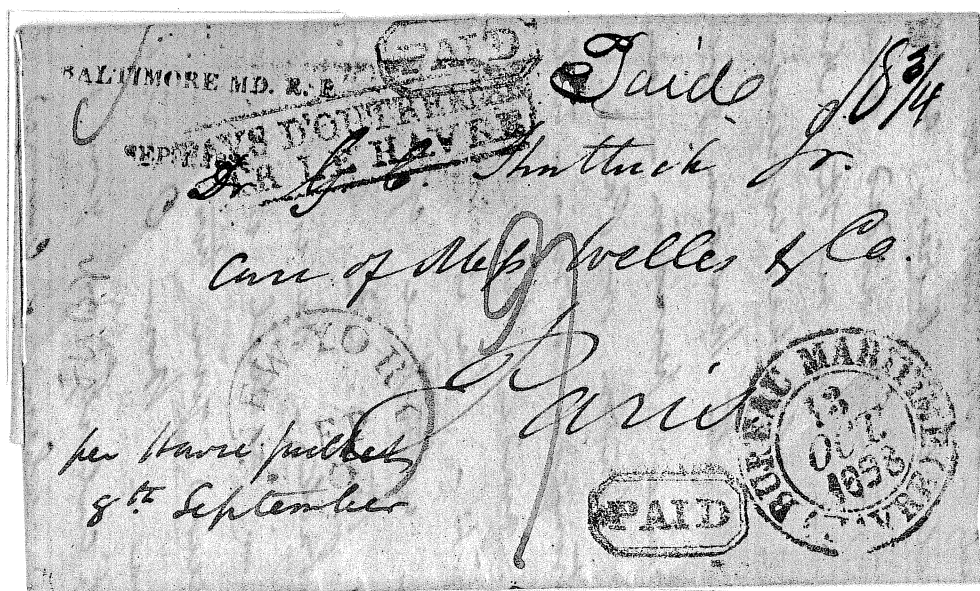 PAID
Paid
18 3/4
BALTIMORE MD. R. R.
PAYS D'OUTREMER
PAR LE HAVRE
SEPT
Dr. G. C. Shattuck Jr.
Care of Mess Welles & Co.
Paris
NEW YORK
SEP
per Havre packet
8th September
PAID
BUREAU MARITIME (HAVRE)
13
OCT
1838